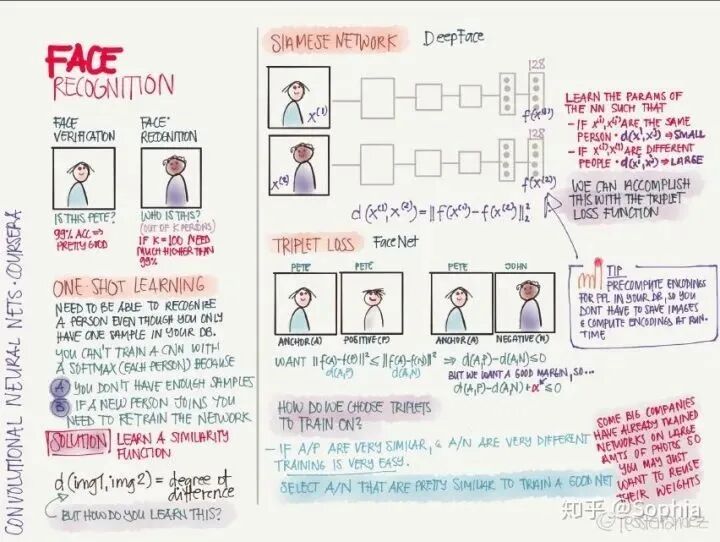 CONVOLUTIONAL NEURAL NETS · COURSERA
FACE
RECOGNITION
FACE
VERIFICATION
IS THIS PETE?
99% ACC ⇒
PRETTY GOOD
FACE
RECOGNITION
WHO IS THIS?
(OUT OF K PERSONS)
IF K=100 NEED
MUCH HIGHER THAN
99%
ONE SHOT LEARNING
NEED TO BE ABLE TO RECOGNIZE
A PERSON EVEN THOUGH YOU ONLY
HAVE ONE SAMPLE IN YOUR DB.
YOU CAN'T TRAIN A CNN WITH
A SOFTMAX (EACH PERSON) BECAUSE
A YOU DON'T HAVE ENOUGH SAMPLES
B IF A NEW PERSON JOINS YOU
NEED TO RETRAIN THE NETWORK
SOLUTION LEARN A SIMILARITY
FUNCTION
d(img1, img2) = degree of
difference
BUT HOW DO YOU LEARN THIS?
SIAMESE NETWORK DeepFace
x⁽¹⁾
128
f(x⁽¹⁾)
x⁽²⁾
128
f(x⁽²⁾)
d(x⁽¹⁾, x⁽²⁾) = ‖f(x⁽¹⁾) - f(x⁽²⁾)‖²₂
LEARN THE PARAMS OF
THE NN SUCH THAT
- IF x⁽ⁱ⁾, x⁽ʲ⁾ ARE THE SAME
PERSON · d(xⁱ, xʲ) ⇒ SMALL
- IF x⁽ⁱ⁾, x⁽ʲ⁾ ARE DIFFERENT
PEOPLE · d(xⁱ, xʲ) ⇒ LARGE
WE CAN ACCOMPLISH
THIS WITH THE TRIPLET
LOSS FUNCTION
TRIPLET LOSS FaceNet
PETE PETE PETE JOHN
ANCHOR(A) POSITIVE(P) ANCHOR(A) NEGATIVE(N)
WANT ‖f(A)-f(P)‖² ≤ ‖f(A)-f(N)‖² ⇒ d(A,P)-d(A,N) ≤ 0
d(A,P) d(A,N)
BUT WE WANT A GOOD MARGIN, SO...
d(A,P)-d(A,N)+α ≤ 0
TIP
PRECOMPUTE ENCODINGS
FOR PPL IN YOUR DB, SO YOU
DONT HAVE TO SAVE IMAGES
& COMPUTE ENCODINGS AT RUN-
TIME
HOW DO WE CHOOSE TRIPLETS
TO TRAIN ON?
- IF A/P ARE VERY SIMILAR, & A/N ARE VERY DIFFERENT
TRAINING IS VERY EASY.
SELECT A/N THAT ARE PRETTY SIMILAR TO TRAIN A GOOD NET
SOME BIG COMPANIES
HAVE ALREADY TRAINED
NETWORKS ON LARGE
AMTS OF PHOTOS SO
YOU MAY JUST
WANT TO REUSE
THEIR WEIGHTS
知乎 @Sophia
@TessFerrandez